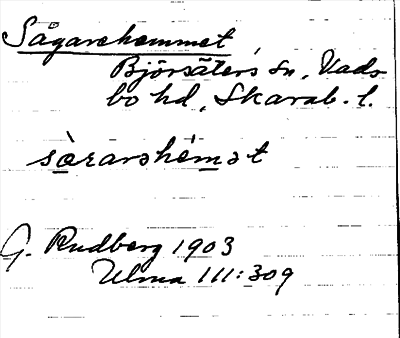 Sågarehemmet
Björsäters sn, Vads-
bo hd, Skarab. l.
sɑ̀rarshém̲ət
G. Rudberg 1903
Ulma 111:309